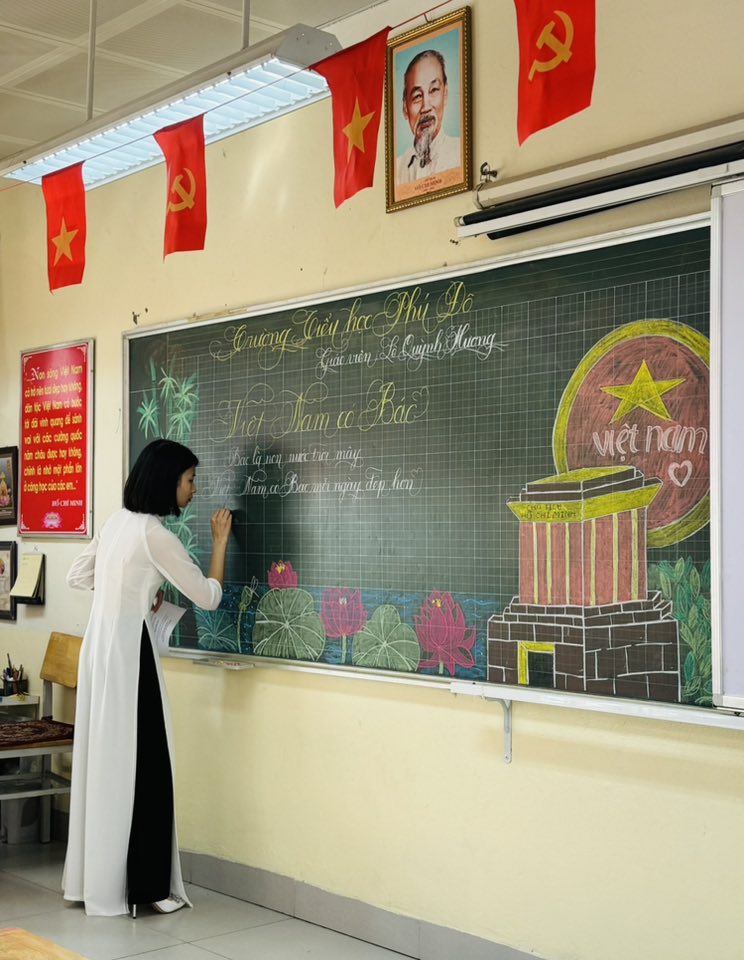 HỒ CHÍ MINH
Trường Tiểu học Phú Đô
Giáo viên: Lê Quỳnh Hương
Việt Nam có Bác
Bác là non nước trời mây
Việt Nam có Bác mỗi ngày đẹp hơn
việt nam
CHỦ TỊCH
HỒ CHÍ MINH
Non sông Việt Nam
có trở nên tươi đẹp hay không,
dân tộc Việt Nam có bước
tới đài vinh quang để sánh
vai với các cường quốc
năm châu được hay không,
chính là nhờ một phần lớn
ở công học của các em...
HỒ CHÍ MINH